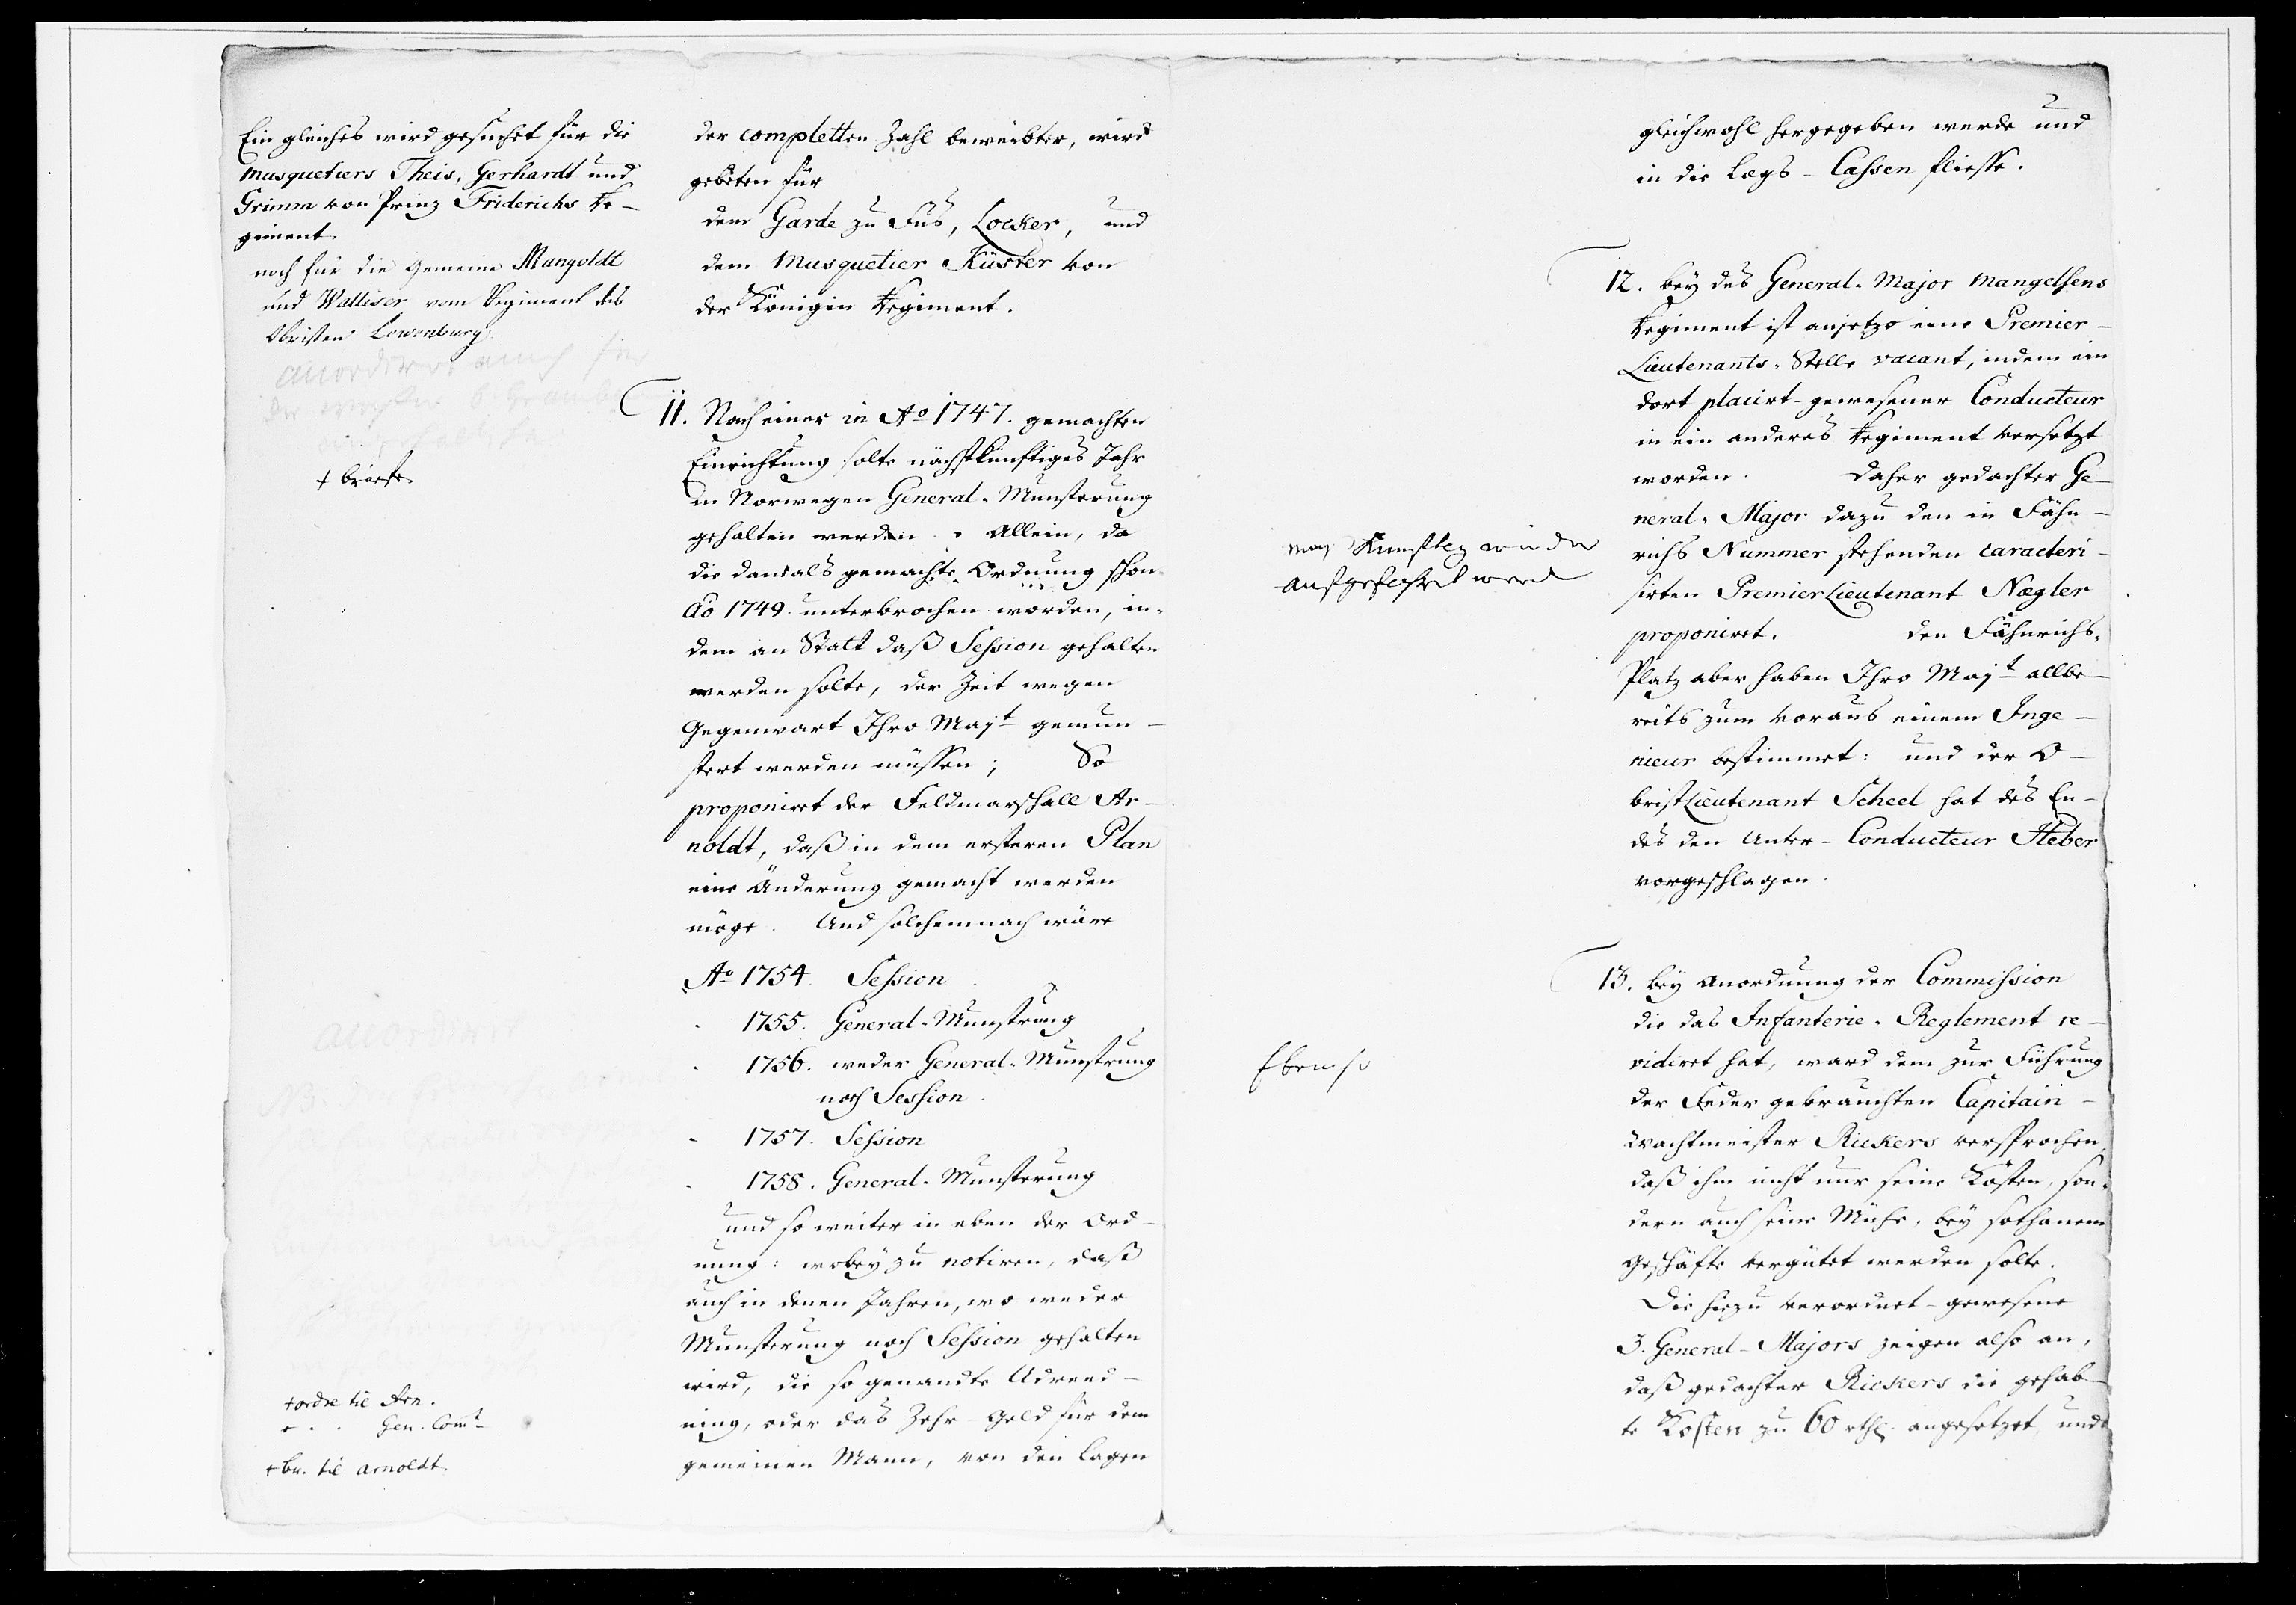 Ein gleiches wird gesuchet für die
Musquetiers Theis, Gerhardt und
Grimm von Prinz Friderichs Re-
giment.
noch für die Gemeine Mangoldt
und Walliser vom Regiment des
Obristen Lowenburg.
+ briefe.
+ ordre til Arn.
+ . . Gen. Com.
+ br. til Arnoldt.
der completten Zahl beweibter, wird
gebeten für
dem Garde zu Fus, Locker, und
dem Musquetier Küster von
der Königin Regiment.
11. Nach einer in Ao 1747. gemachten
Einrichtung solte nächstkünftiges Jahr
in Norwegen General-Munsterung
gehalten werden. Allein, da
die damals gemachte Ordnung schon
Ao 1749. unterbrochen worden, in-
dem an Statt daß Session gehalten
werden solte, der Zeit wegen
Gegenwart Ihro Majt gemun-
stert werden müssen; So
proponiret der Feldmarschall Ar-
noldt, daß in dem ersteren Plan
eine Änderung gemacht werden
möge. Und solchemnach wäre
Ao 1754. Session
- 1755. General-Munstrung
- 1756. weder General-Munstrung
noch Session.
- 1757. Session
- 1758. General-Munsterung
und so weiter in eben der Ord-
nung: wobey zu notiren, daß
auch in denen Jahren, wo weder
Munsterung noch Session gehalten
wird, die so genandte Udreed-
ning, oder das Zehr-Geld für dem
gemeinen Mann, von den Lagen
gleichwohl hergegeben werde und
in die Lægs-Cassen fliesse.
12. bey des General-Major Mangelsens
Regiment ist anjetzo eine Premier-
Lieutenants-Stelle vacant, indem ein
dort placirt-gewesener Conducteur
in ein anderes Regiment versetzt
worden. Daher gedachter Ge-
neral-Major dazu den in Fähn-
richs Nummer stehenden caracteri-
sirten PremierLieutenant Nægler
proponiret. den Fähnrichs-
Platz aber haben Ihro Majt allbe-
reits zum voraus einem Inge-
nieur bestimmet: und der O-
bristLieutenant Scheel hat des En-
des den Unter-Conducteur Heber
vorgeschlagen.
13. Bey Anordnung der Commission
die das Infanterie-Reglement re-
vidiret hat, ward dem zur Führung
der Feder gebrauchten Capitain-
Wachtmeister Rickers versprochen,
daß ihm nicht nur seine Kosten, son-
dern auch seine Mühe, bey sothanem
Geschäfte vergütet werden solte.
Die hiezu verordnet-gewesene
3. General-Majors zeigen also an,
daß gedachter Rickers die gehab-
te Kosten zu 60 rthl. angesetzet, und
Ebenso